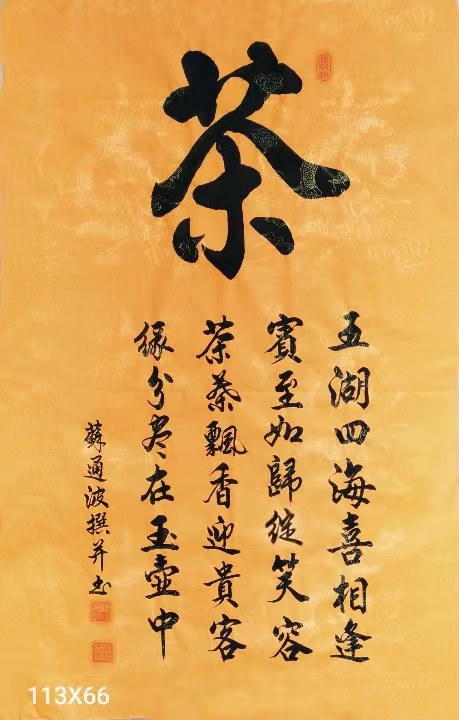 茶
五湖四海喜相逢
賓至如歸綻笑容
茶茶飄香迎貴客
緣分尽在玉壺中
蘇通波撰并书
113X66